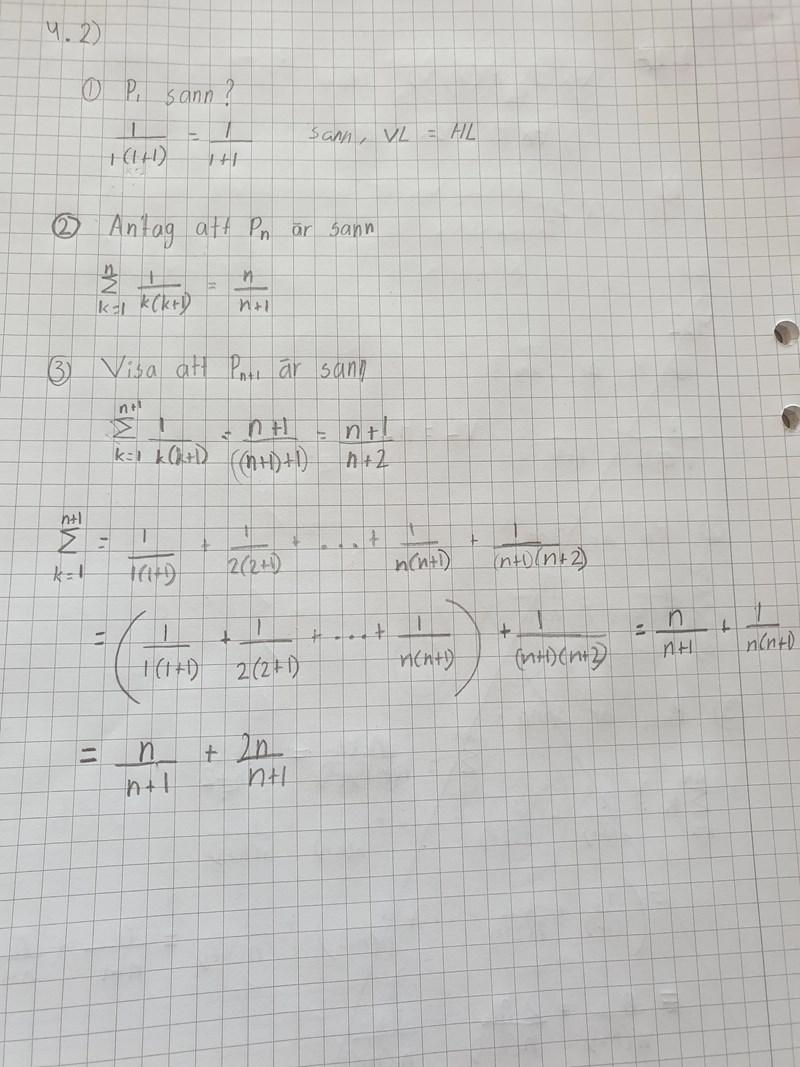 4.2)
① P₁ sann?
1/(1(1+1)) = 1/(1+1) sann, VL = HL
② Antag att Pₙ är sann
∑_{k=1}^{n} 1/(k(k+1)) = n/(n+1)
③ Visa att Pₙ₊₁ är sann
∑_{k=1}^{n+1} 1/(k(k+1)) = (n+1)/((n+1)+1) = (n+1)/(n+2)
∑_{k=1}^{n+1} = 1/(1(1+1)) + 1/(2(2+1)) + .... + 1/(n(n+1)) + 1/((n+1)(n+2))
= (1/(1(1+1)) + 1/(2(2+1)) + .... + 1/(n(n+1))) + 1/((n+1)(n+2)) = n/(n+1) + 1/(n(n+1)
= n/(n+1) + 2n/(n+1)